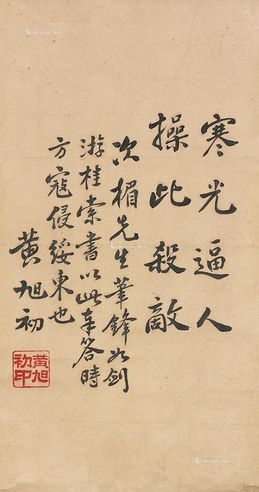 寒光逼人
操此殺敵
次楣先生筆鋒如剑
游桂索書以此奉答時
方寇侵綏東也
黄旭初
黄旭
初印